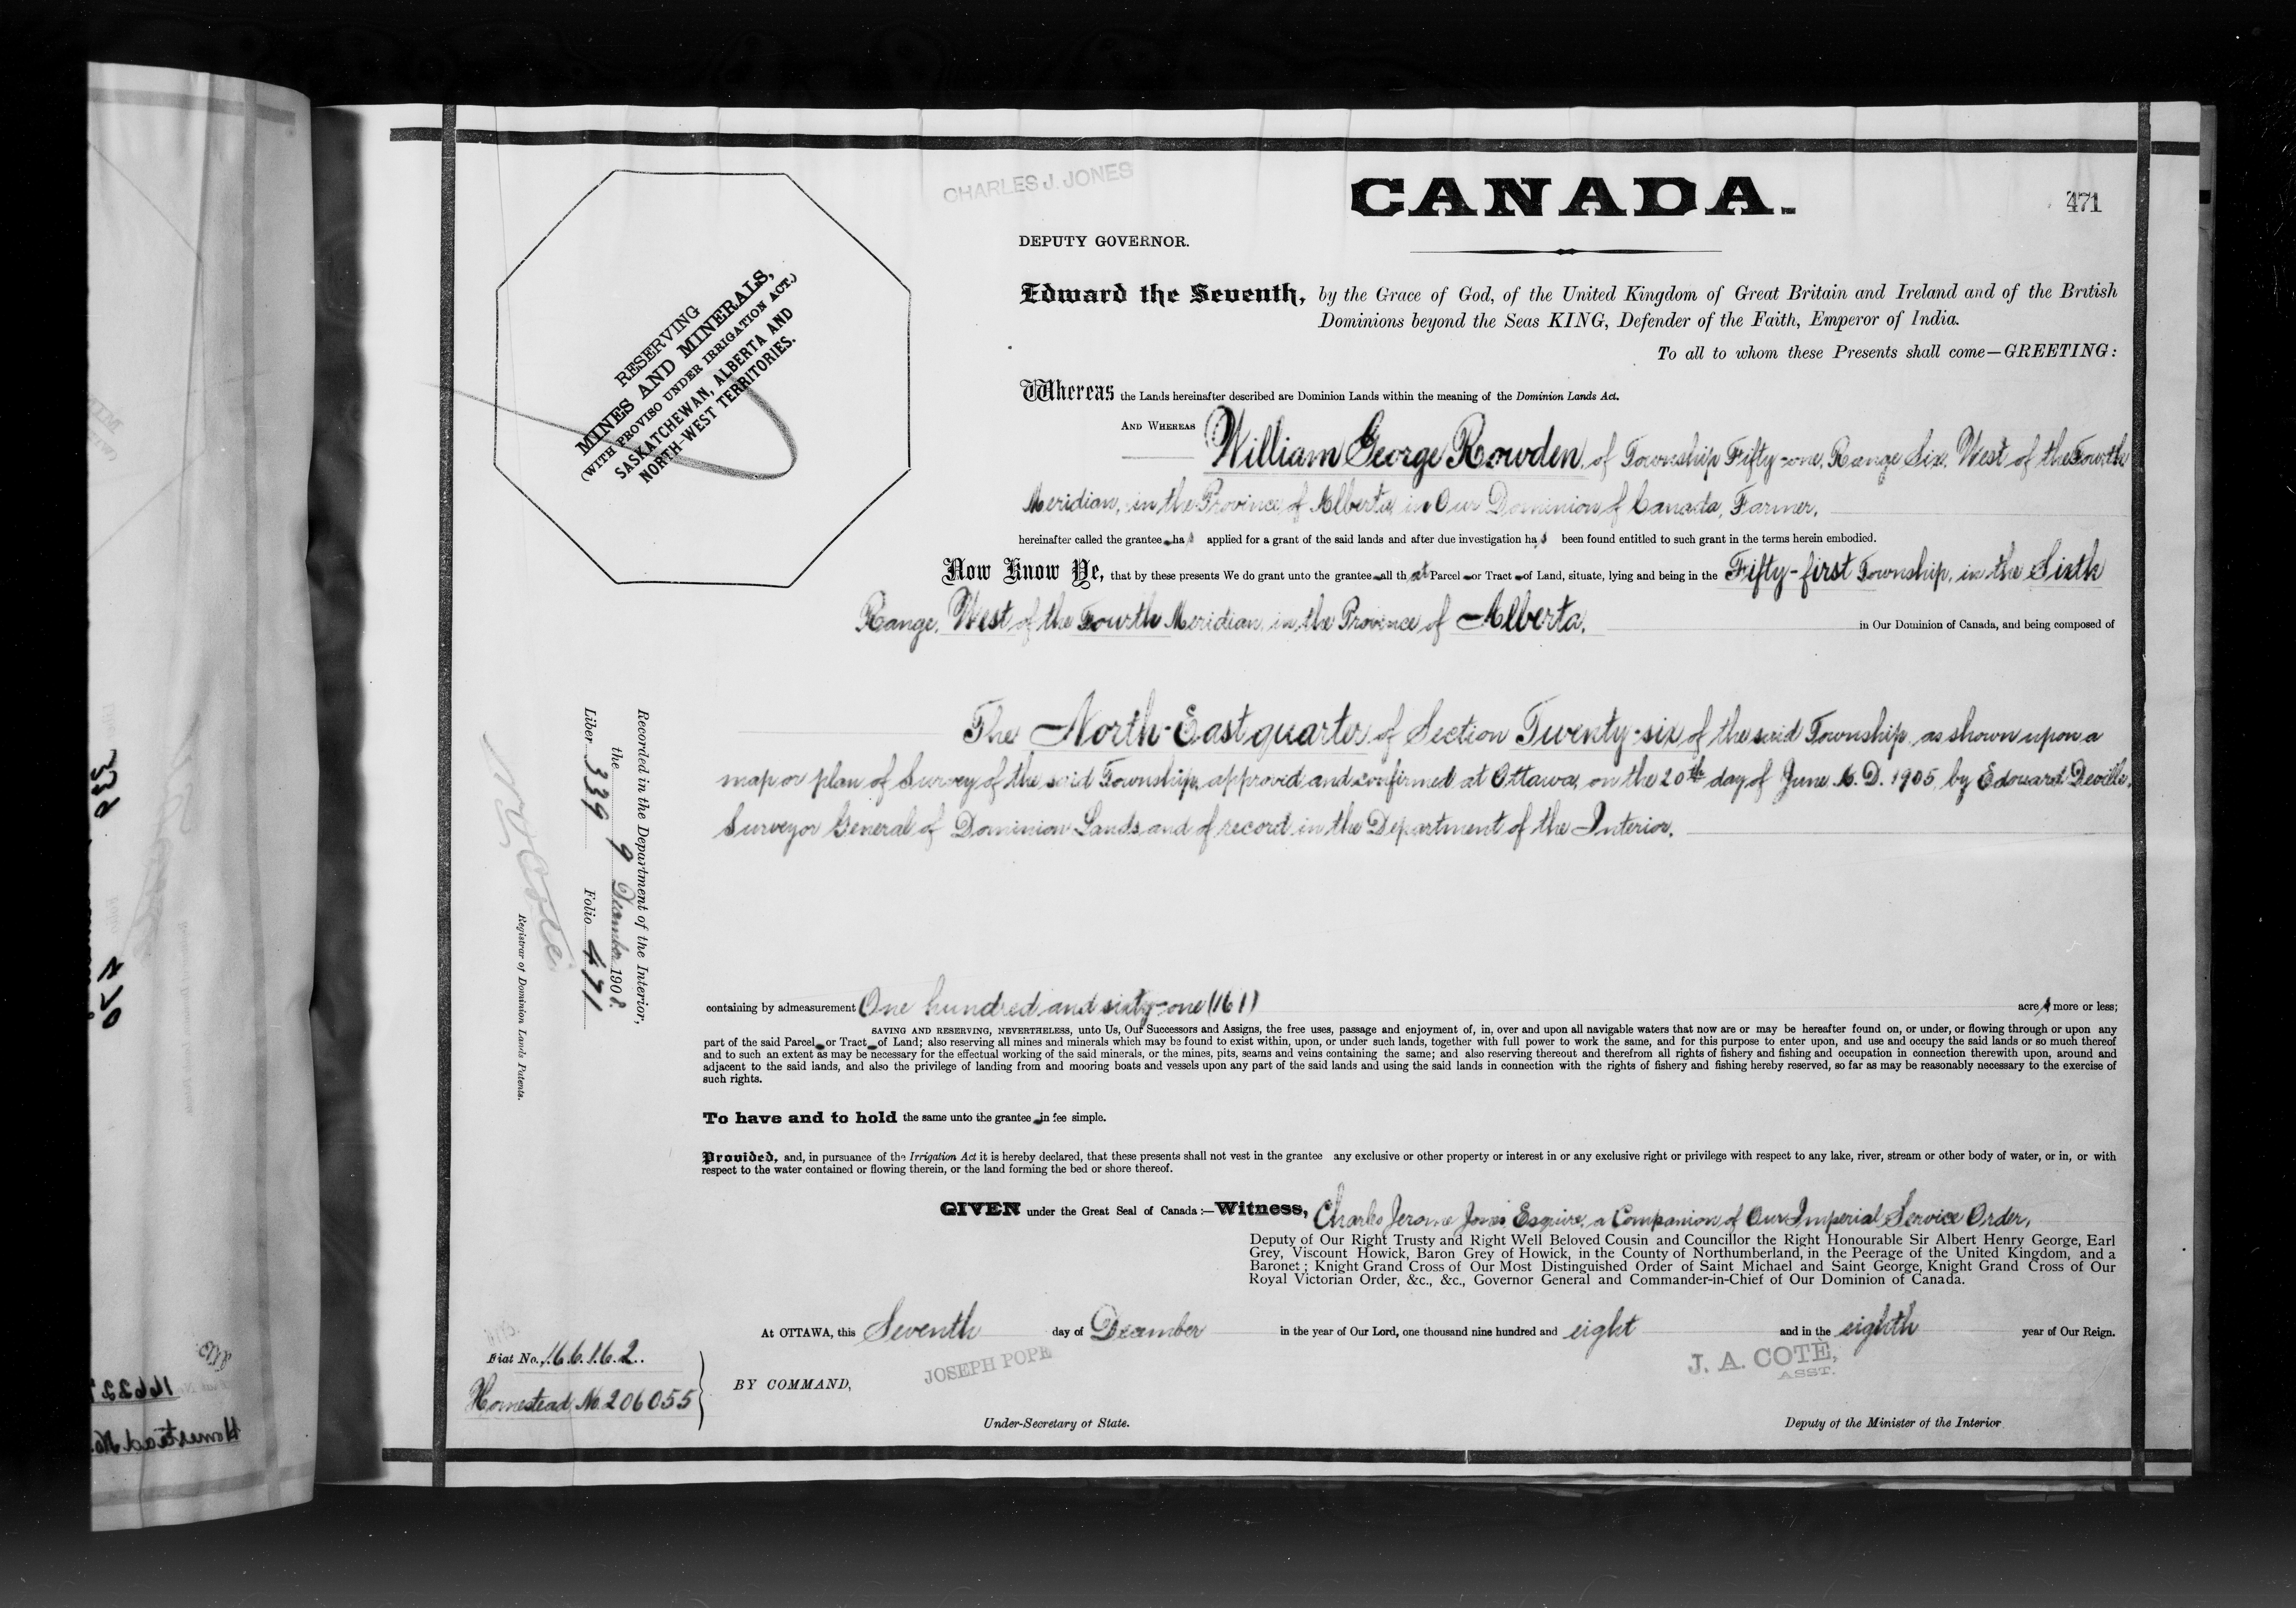 CHARLES J. JONES
CANADA.
471
DEPUTY GOVERNOR.
Edward the Seventh, by the Grace of God, of the United Kingdom of Great Britain and Ireland and of the British
Dominions beyond the Seas KING, Defender of the Faith, Emperor of India.
To all to whom these Presents shall come—GREETING:
RESERVING
MINES AND MINERALS,
(WITH PROVISO UNDER IRRIGATION ACT.)
SASKATCHEWAN, ALBERTA AND
NORTH-WEST TERRITORIES.
Whereas the Lands hereinafter described are Dominion Lands within the meaning of the Dominion Lands Act.
AND WHEREAS William George Rowden, of Township Fifty-one, Range Six, West of the Fourth
Meridian, in the Province of Alberta in Our Dominion of Canada, Farmer,
hereinafter called the grantee has applied for a grant of the said lands and after due investigation has been found entitled to such grant in the terms herein embodied.
Now Know Ye, that by these presents We do grant unto the grantee all that Parcel or Tract of Land, situate, lying and being in the Fifty-first Township, in the Sixth
Range, West of the Fourth Meridian, in the Province of Alberta, in Our Dominion of Canada, and being composed of
The North-East quarter of Section Twenty-six of the said Township, as shown upon a
map or plan of Survey of the said Township, approved and confirmed at Ottawa, on the 20th day of June A.D. 1905, by Edouard Deville,
Surveyor General of Dominion Lands and of record in the Department of the Interior.
Recorded in the Department of the Interior,
the 9 December 1908.
Liber 339 Folio 471
Registrar of Dominion Lands Patents.
containing by admeasurement One hundred and sixty-one (161) acres more or less;
SAVING AND RESERVING, NEVERTHELESS, unto Us, Our Successors and Assigns, the free uses, passage and enjoyment of, in, over and upon all navigable waters that now are or may be hereafter found on, or under, or flowing through or upon any
part of the said Parcel or Tract of Land; also reserving all mines and minerals which may be found to exist within, upon, or under such lands, together with full power to work the same, and for this purpose to enter upon, and use and occupy the said lands or so much thereof
and to such an extent as may be necessary for the effectual working of the said minerals, or the mines, pits, seams and veins containing the same; and also reserving thereout and therefrom all rights of fishery and fishing and occupation in connection therewith upon, around and
adjacent to the said lands, and also the privilege of landing from and mooring boats and vessels upon any part of the said lands and using the said lands in connection with the rights of fishery and fishing hereby reserved, so far as may be reasonably necessary to the exercise of
such rights.
To have and to hold the same unto the grantee in fee simple.
Provided, and, in pursuance of the Irrigation Act it is hereby declared, that these presents shall not vest in the grantee any exclusive or other property or interest in or any exclusive right or privilege with respect to any lake, river, stream or other body of water, or in, or with
respect to the water contained or flowing therein, or the land forming the bed or shore thereof.
GIVEN under the Great Seal of Canada:—Witness, Charles Jerome Jones, Esquire, a Companion of Our Imperial Service Order,
Deputy of Our Right Trusty and Right Well Beloved Cousin and Councillor the Right Honourable Sir Albert Henry George, Earl
Grey, Viscount Howick, Baron Grey of Howick, in the County of Northumberland, in the Peerage of the United Kingdom, and a
Baronet; Knight Grand Cross of Our Most Distinguished Order of Saint Michael and Saint George, Knight Grand Cross of Our
Royal Victorian Order, &c., &c., Governor General and Commander-in-Chief of Our Dominion of Canada.
At OTTAWA, this Seventh day of December in the year of Our Lord, one thousand nine hundred and eight and in the eighth year of Our Reign.
Fiat No. 16162.
Homestead No. 206055
BY COMMAND,
JOSEPH POPE
Under-Secretary of State.
J. A. COTÉ,
ASST.
Deputy of the Minister of the Interior